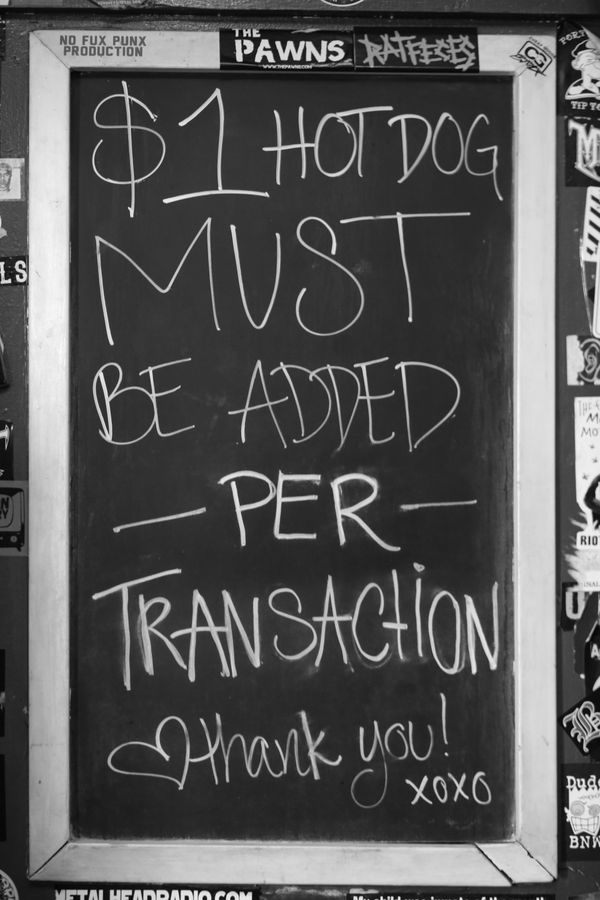 NO FUX PUNX
PRODUCTION
THE
PAWNS
WWW.THEPAWNS.COM
RATFECES
$1 HOT DOG
MUST
BE ADDED
— PER —
TRANSACTION
♡ thank you!
XOXO
METALHEADRADIO.COM
TIP
LS
RIOT
BNW